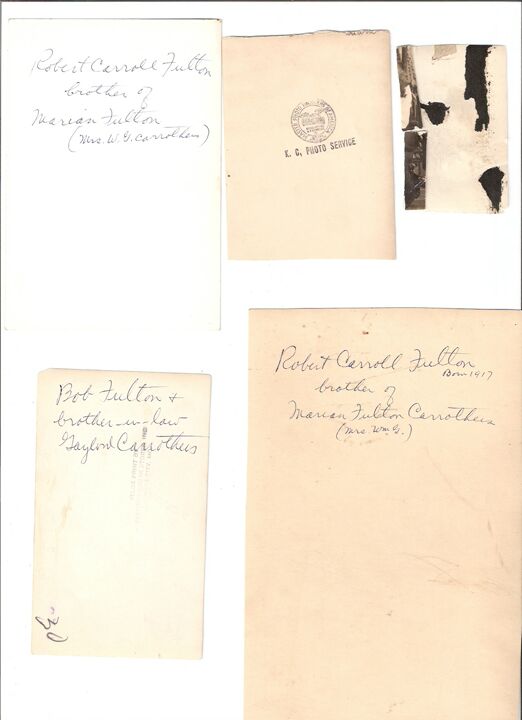 Robert Carroll Fulton
brother of
Marian Fulton
(Mrs. W. G. Carrothers)
K. C. PHOTO SERVICE
Robert Carroll Fulton
Born 1917
brother of
Marian Fulton Carrothers
(Mrs. Wm G.)
Bob Fulton +
brother-in-law
Gaylord Carrothers